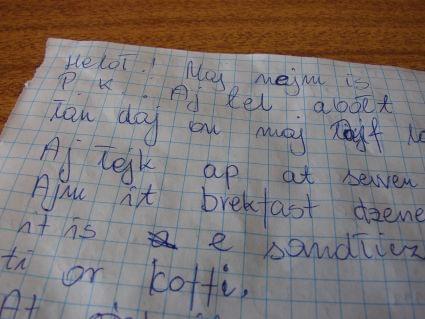 Helol! Maj nejm is
P. K. Aj tel abołt
łan daj on maj łajf
Aj łejk ap at sewen
Ajm it brekfast dżene
it is e sandłicz
ti or koffi.
At